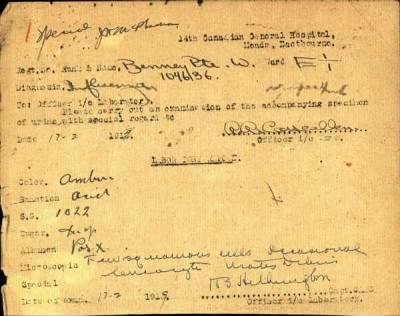 14th Canadian General Hospital,
Meads, Eastbourne.
Regt. No. Rank & Name, Benney Pte. W. Ward E1
1046136.
Diagnosis, Influenza
To: Officer i/c Laboratory.
Please carry out an examination of the accompanying specimen
of urine with special regard to
Date 17-2 191
Officer i/c
Color. Amber
Reaction Acid
S.G. 1022
Sugar. Neg
Albumen Pos. X
Microscopic Few squamous cells Occasional
leucocyte Urates Debris
Special
Date of exam. 17-2 191 Capt. C.A.M.C.
Officer i/c Laboratory.